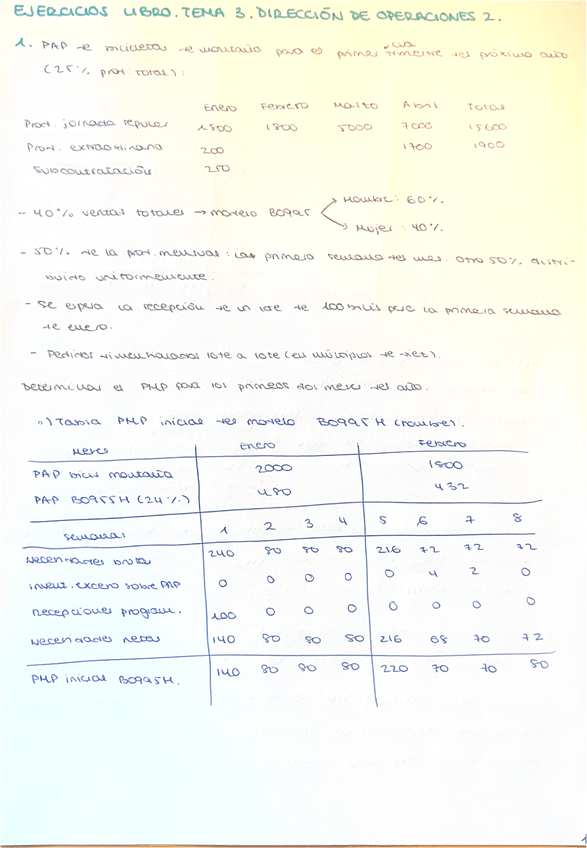 EJERCICIOS LIBRO. TEMA 3. DIRECCIÓN DE OPERACIONES 2.
1. PAP de bicicletas de montaña para el primer cua trimestre del próximo año
(25% prod. total):
Enero Febrero Marzo Abril Total
Prod. jornada regular 1800 1800 5000 7000 15600
Prod. extraordinaria 200 1700 1900
Subcontratación 250
- 40% ventas totales → modelo B0995 Hombre: 60%.
Mujer: 40%.
- 50% de la prod. mensual: la primera semana del mes. Otro 50% distri-
buido uniformemente.
- Se espera la recepción de un lote de 100 bicis para la primera semana
de enero.
- Pedidos dimensionados lote a lote (en múltiplos de diez).
Determinar el PMP para los primeros dos meses del año.
a) Tabla PMP inicial del modelo B0995H (hombre).
Meses Enero Febrero
PAP bicis montaña 2000 1800
PAP B0955H (24%) 480 432
Semanas 1 2 3 4 5 6 7 8
Necesidades brutas 240 80 80 80 216 72 72 72
Invent. exceso sobre PAP 0 0 0 0 0 4 2 0
Recepciones program. 100 0 0 0 0 0 0 0
Necesidades netas 140 80 80 80 216 68 70 72
PMP inicial B0995H. 140 80 80 80 220 70 70 80
1